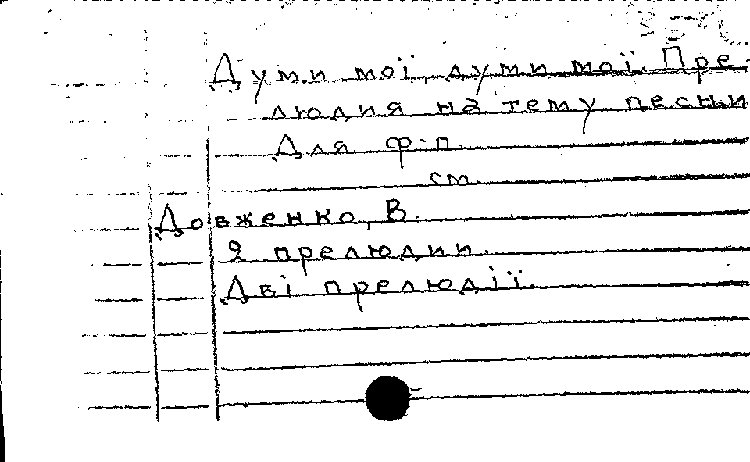 Думи мої, думи мої. Пре-
людия на тему песни
Для ф-п.
см.
Довженко, В.
2 прелюдии.
Дві прелюдії.